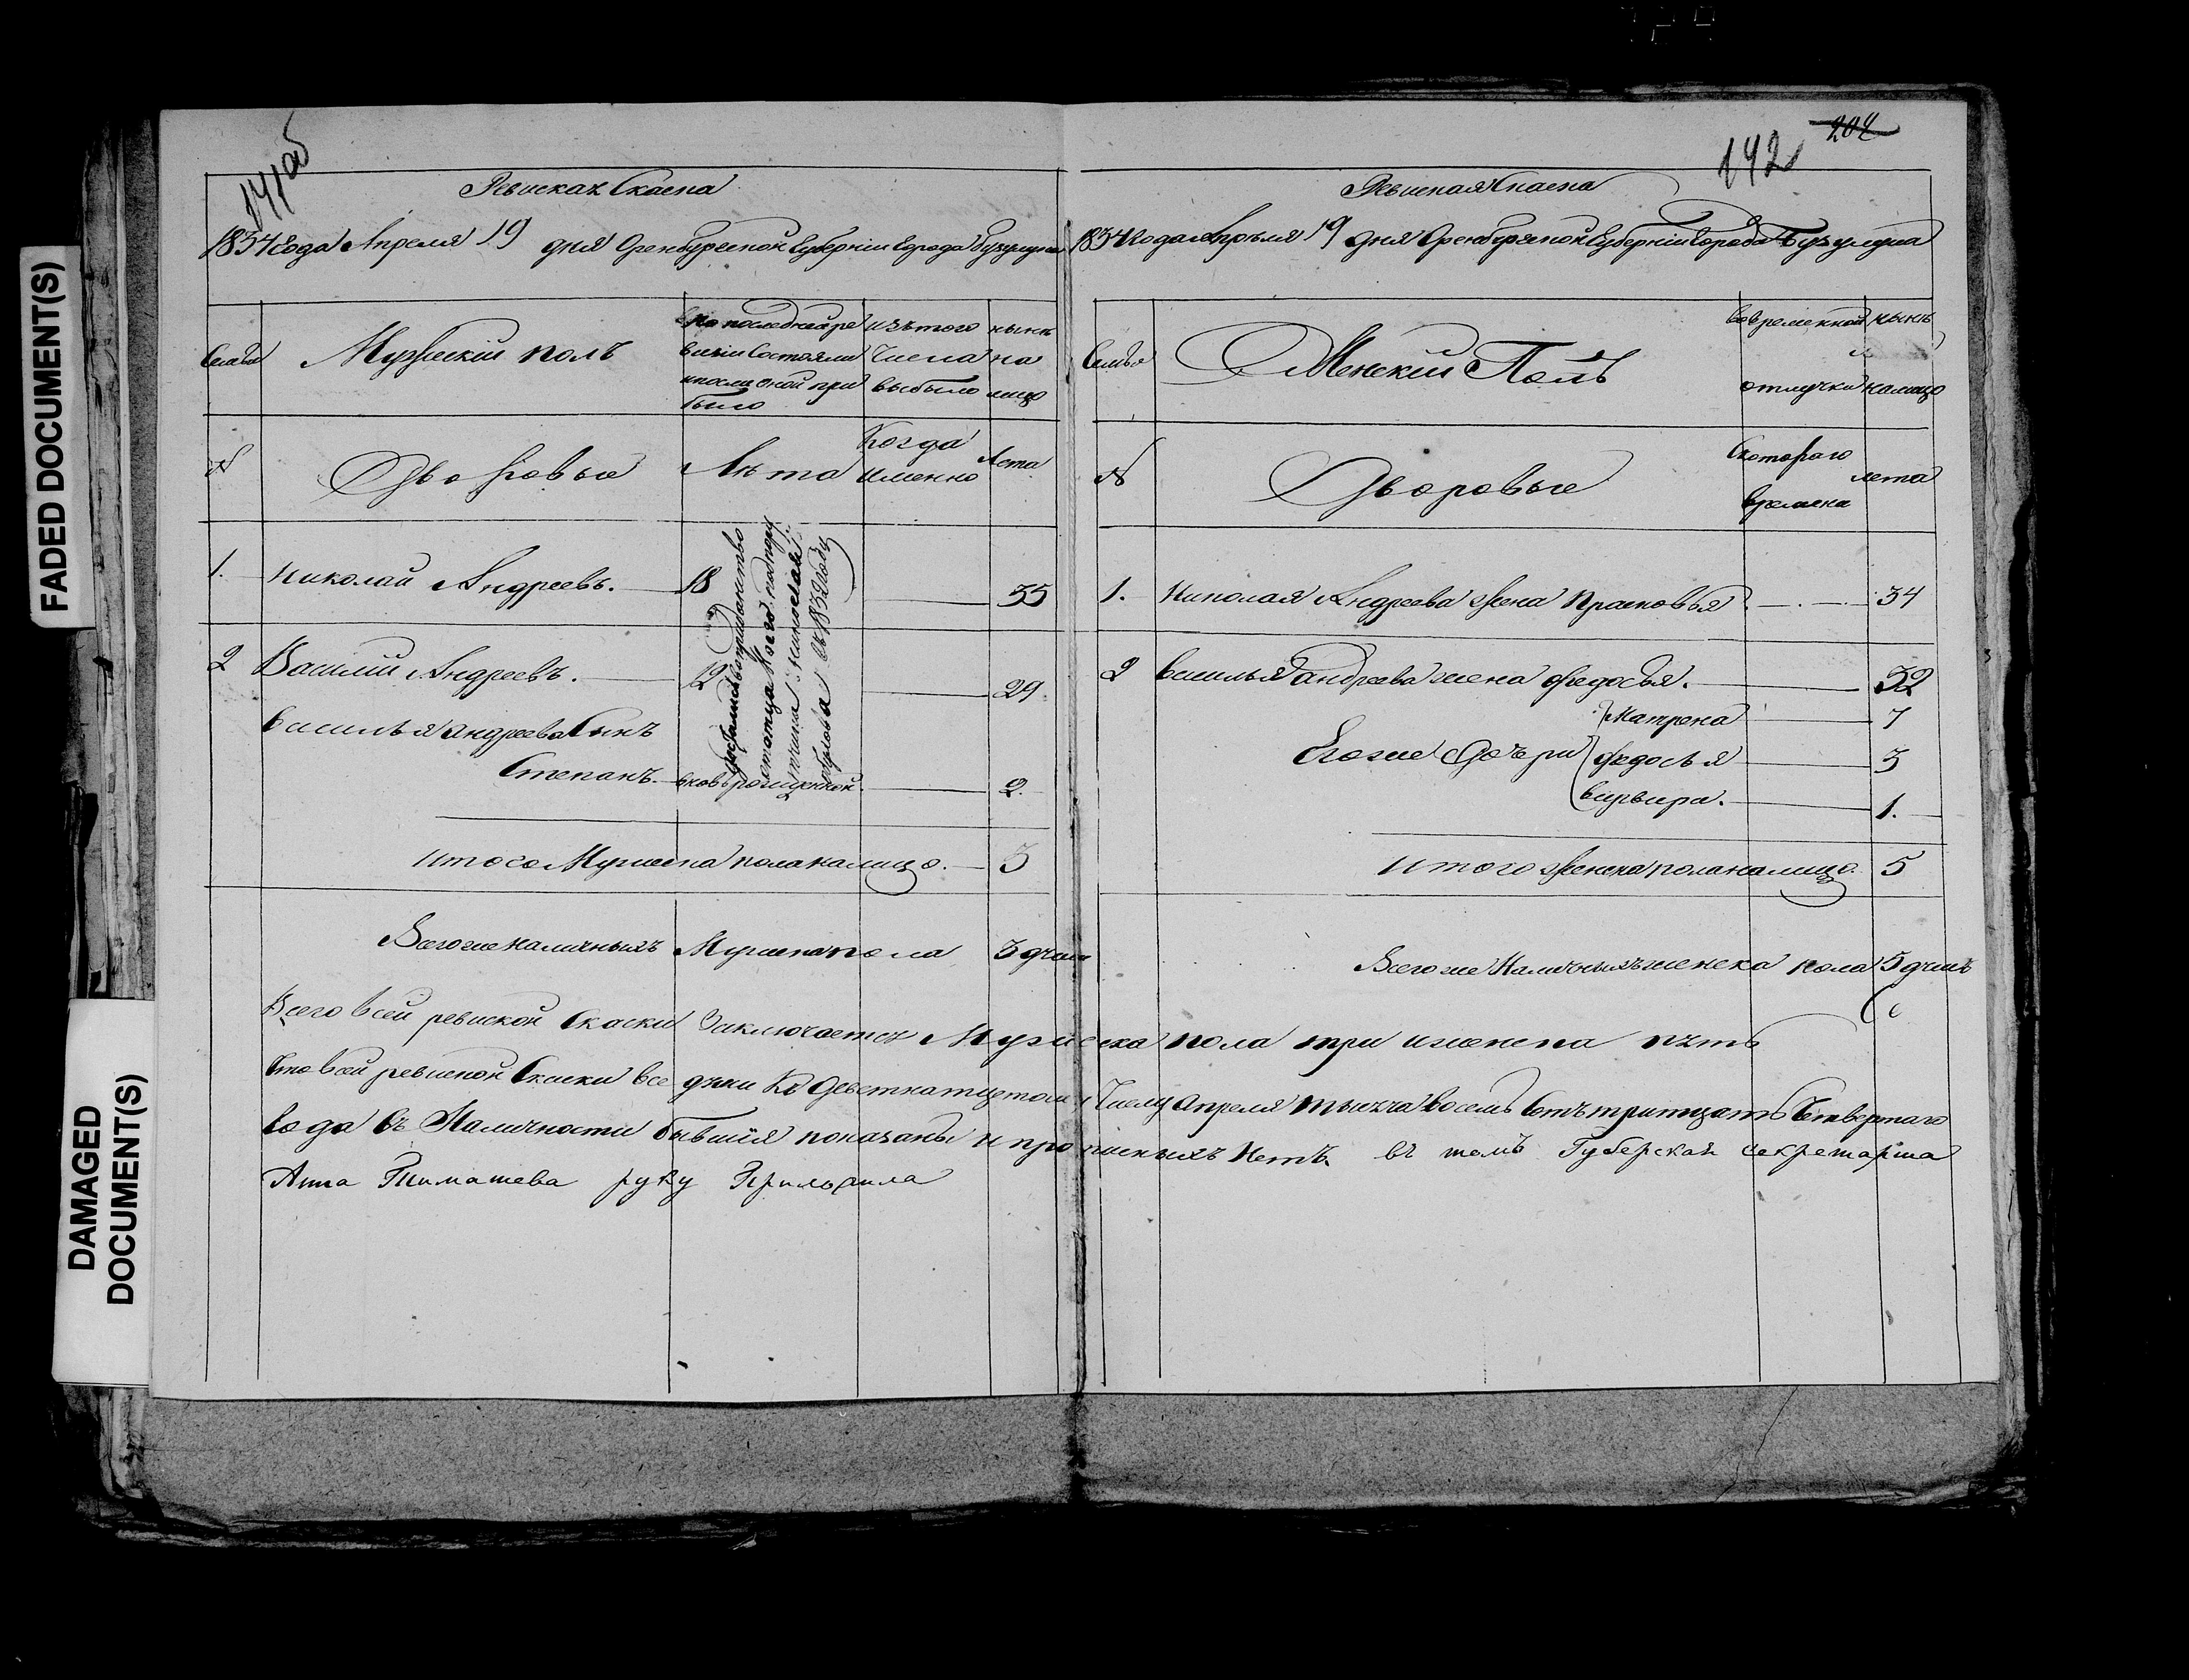 FADED DOCUMENT(S)
DAMAGED
DOCUMENT(S)
141об
Ревиская Скаска
1834 Года Апреля 19 дня Оренбурской Губернии Города Бузулука
Семьи
Мужеский полъ
По последней ре
визии Состояли
и после оной при
было
изъ того
числа
выбыло
нынѣ
на
лицо
№
Дворовые
Лѣта
Когда
именно
Лета
1. Николай Андреевъ. 18 35
2 Василий Андреевъ. 12 29
Василья Андреева Сынъ
Степанъ. вновь рожденной. 2.
въ 1832 году
Итого Мужеска пола налицо. 3
Всего же наличныхъ Мужеска пола 3 души
202
142
Ревиская Скаска
1834 Года Апреля 19 дня Оренбурской Губернии Города Бузулука
Семьи
Женский Полъ
Во временной
отлучки
нынѣ
налицо
№
Дворовые
Скотораго
времяни
лета
1. Николая Андреева жена Прасковья. 34
2 Василья Андреева жена Федосья. 32
Матрена 7
Егоже Дочьри Федосья 3
Варвара. 1.
Итого Женска пола налицо. 5
Всего же Наличныхъ женска пола 5 душъ
Всего в сей ревиской Скаски Заключается Мужеска пола три и женска пять
Что в сей ревиской Скаски все души Къ Девятнатцетому Числу Апреля тысяча восемь Сотъ тритцать Четвертаго
Года въ Наличности бывшия показаны и прописныхъ Нетъ. въ томъ Губерская секретарша
Анна Тимашева руку Приложила